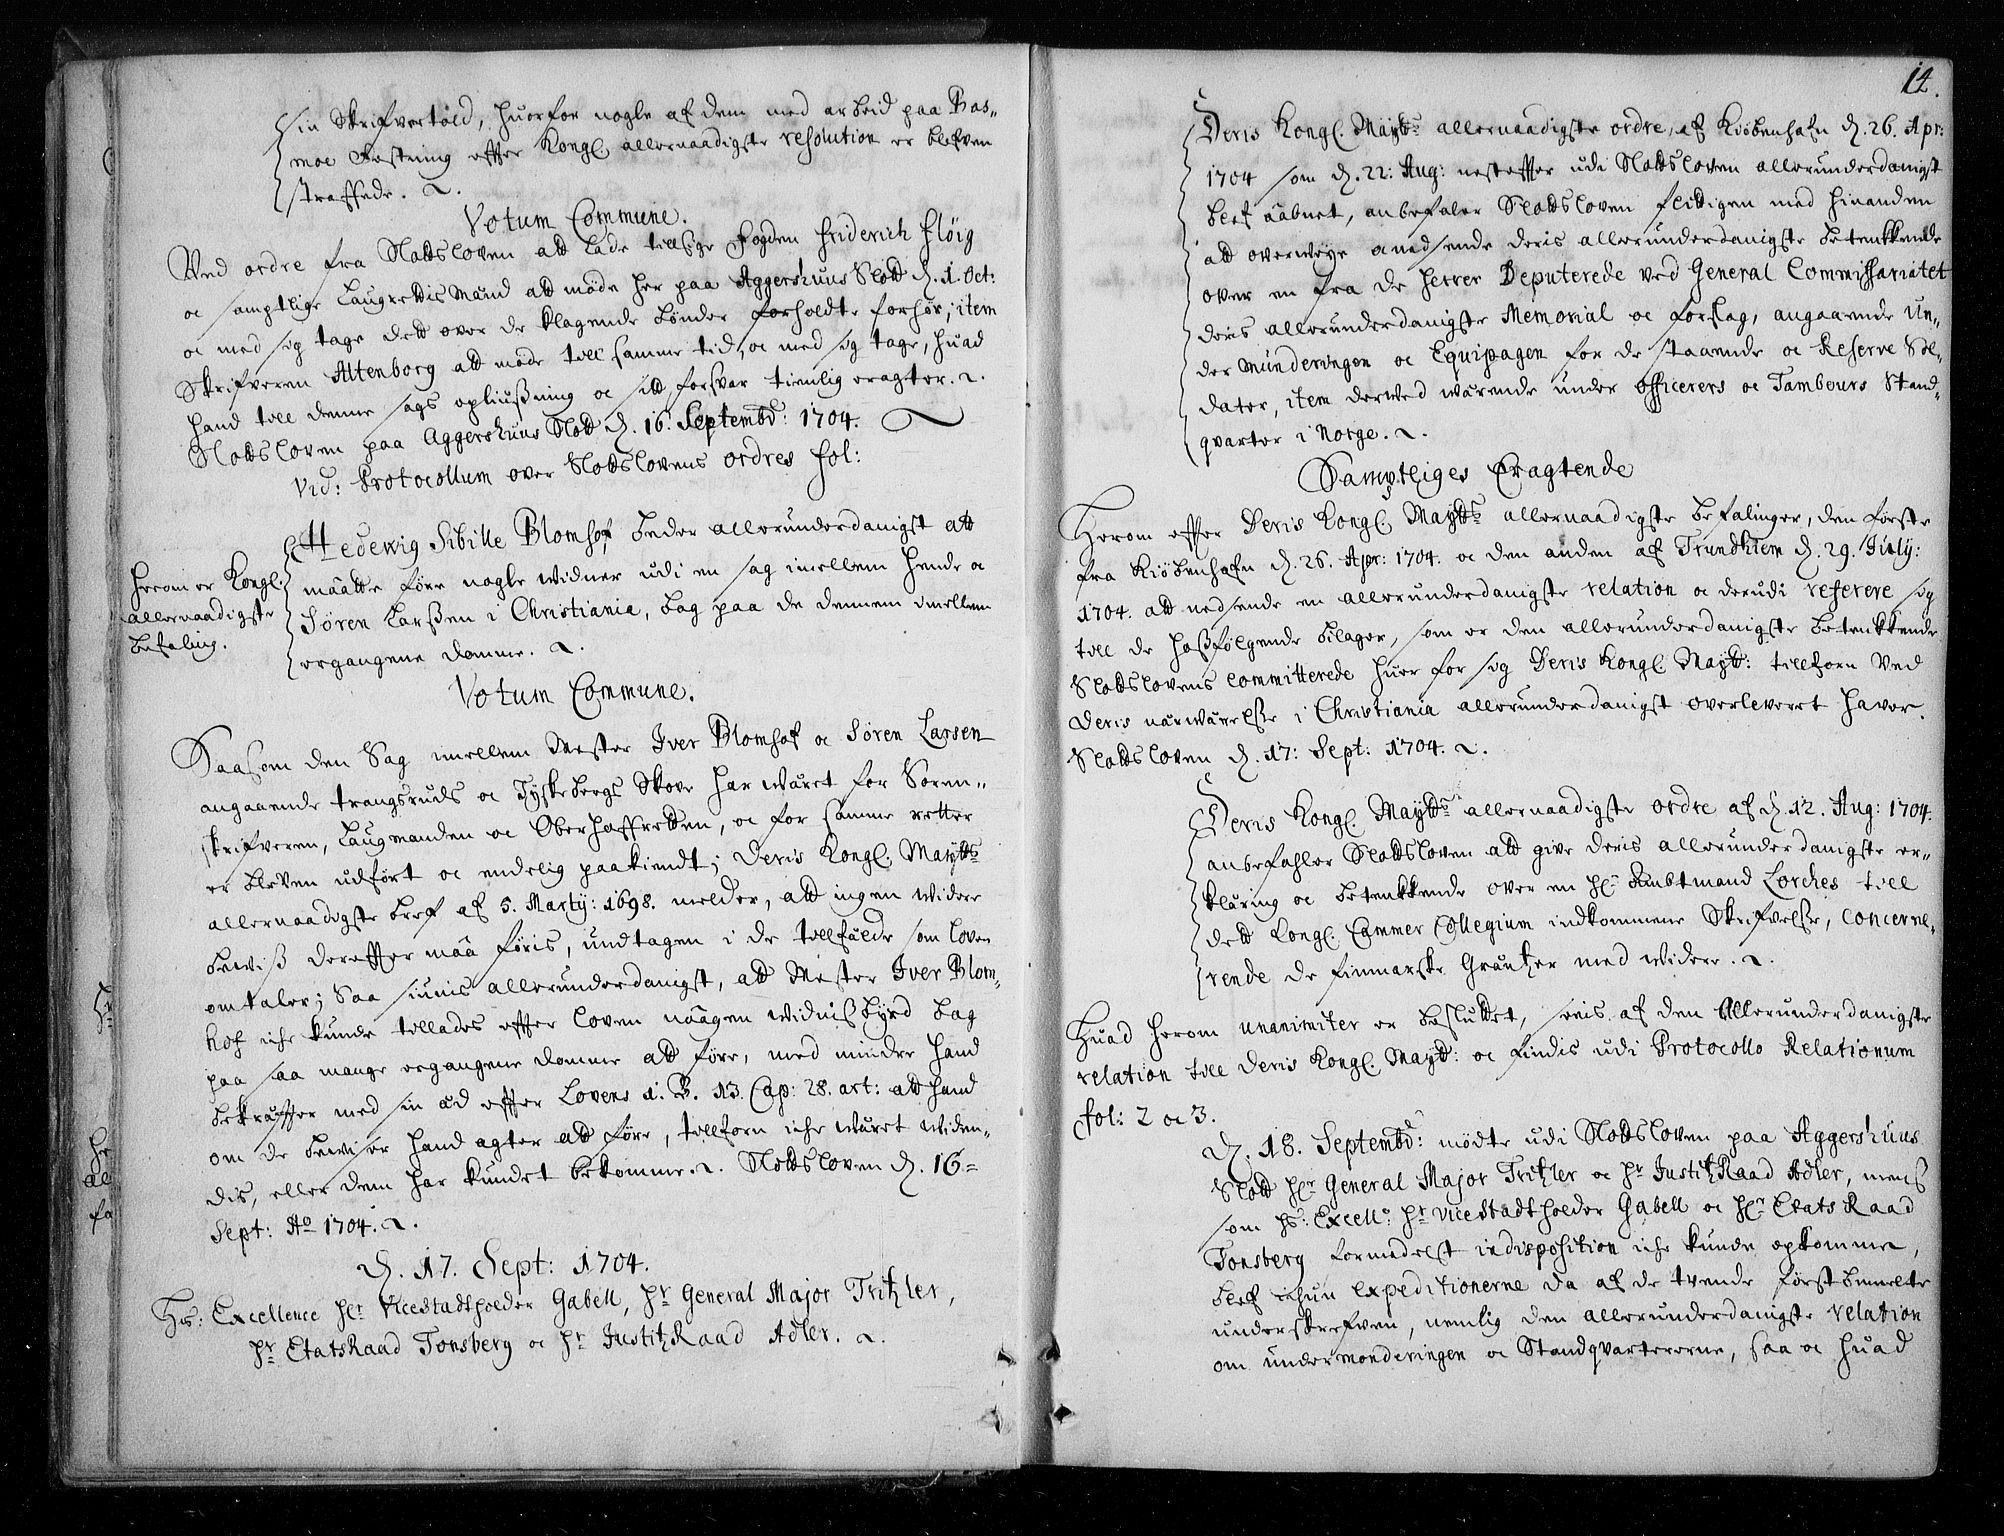 sin Skrifvertold, huorfor nogle af dem med arbeid paa Bas-
moe Festning efter Kongl. allernaadigste resolution er blefven
straffede.
Votum Commune.
Ved ordre fra Slodsloven att lade tillsige Fogden Friderich Fløig
oc samptlige Laugrettis Mænd att møde her paa Aggershuus Slott d. 1. Oct:
oc med sig tage dett over de klagende bønder forholdte forhør; item
Skrifveren Altenborg att møde till samme tid, oc med sig tage, huad
hand till denne sags opliusning oc sitt forsvar tienlig eragter.
Slodsloven paa Aggershuus Slott d. 16. Septembr: 1704.
Vid: Protocollum over Slodslovens ordres fol:
Herom er Kongl.
allernaadigste
befaling.
Hedewig Sibille Blomhof beder allerunderdanigst att
maatte føre nogle widner udi en sag imellem hende oc
Søren Larßen i Christiania, bag paa de dennem imellem
ergangene domme.
Votum Commune.
Saasom den Sag imellem Mester Iver Blomhof oc Søren Larsen
angaaende trangsruds oc Tyskebergs Skove har wæret for Soren-
skrifveren, Laugmanden oc Oberhoffretten, oc for samme retter
er bleven udført oc endelig paakiendt; Deris Kongl. Maytts
allernaadigste bref af 5. Martij: 1698. melder, att ingen widere
bewiß derefter maa føris, undtagen i de tillfælde som loven
omtaler; Saa siunis allerunderdanigst, att Mester Iver Blom-
hof iche kunde tillades efter loven naagen widnisbyrd bag
paa saa mange ergangene domme att føre, med mindre hand
bekræfter med sin æd efter Lovens 1. B. 13. Cap: 28. art: att hand
om de bewiser hand agter att føre, tillforn iche wæret widen-
dis, eller dem har kundet bekomme. Slodsloven d. 16=
Sept: Ao 1704.
D. 17. Sept: 1704.
Hs: Excellence Hr Vicestadtholder Gabell, Hr General Major Tritzler,
Hr EtatsRaad Tonsberg oc Hr JustitzRaad Adler.
14.
Deris Kongl. Maytts allernaadigste ordre, af Kiøbenhafn d. 26. Apr:
1704 som d. 22: Aug: nestefter udi Slodsloven allerunderdanigst
blef aabnet, anbefaler Slodsloven flittigen med hinanden
att overweye oc nedsende deris allerunderdanigste betenkkende
over en fra de Herrer Deputerede ved General Commissariatet
deris allerunderdanigste Memorial oc forslag, angaaende Un-
der Munderingen oc Equipagen for de staaende oc Reserve Sol-
dater, item derved wærende under officerers oc Tambours Stand-
qvarter i Norge.
Samptliges Eragtende
Herom efter Deris Kongl. Maytts allernaadigste befalinger, den første
fra Kiøbenhafn d. 26. Apr: 1704. oc den anden af Trundhiem d. 29. July:
1704. att nedsende en allerunderdanigste relation oc derudi referere sig
till de hosfølgende bilager, som er den allerunderdanigste betenkkende
Slodslovens committerede huer for sig Deris Kongl. Maytt: tillforn ved
Deris nærwærelse i Christiania allerunderdanigst overleveret haver.
Slodsloven d. 17: Sept: 1704.
Deris Kongl. Maytts allernaadigste ordre af d. 12. Aug: 1704.
anbefahler Slodsloven att give deris allerunderdanigste er-
klæring oc betenkkende over en Hr Ambtmand Lorches till
dett Kongl. Cammer Collegium indkommene Skrifvelse, concerne-
rende de finmarske Grentzer med widere.
Huad herom unanimiter er besluttet, sees af den allerunderdanigste
relation till Deris Kongl. Maytt: oc findis udi Protocollo Relationum
fol: 2 oc 3.
D. 18. Septembr: mødte udi Slodsloven paa Aggershuus
Slott Hr General Major Tritzler oc Hr JustitzRaad Adler, mens
som Hs: Excell: Hr Vicestadtholder Gabell oc Hr Etats Raad
Tonsberg formedelst indisposition iche kunde opkomme,
blef ichun expeditionerne da af de tvende først bemelte
underskrefven, nemlig den allerunderdanigste relation
om undermonderingen oc Standqvartererne, saa oc huad